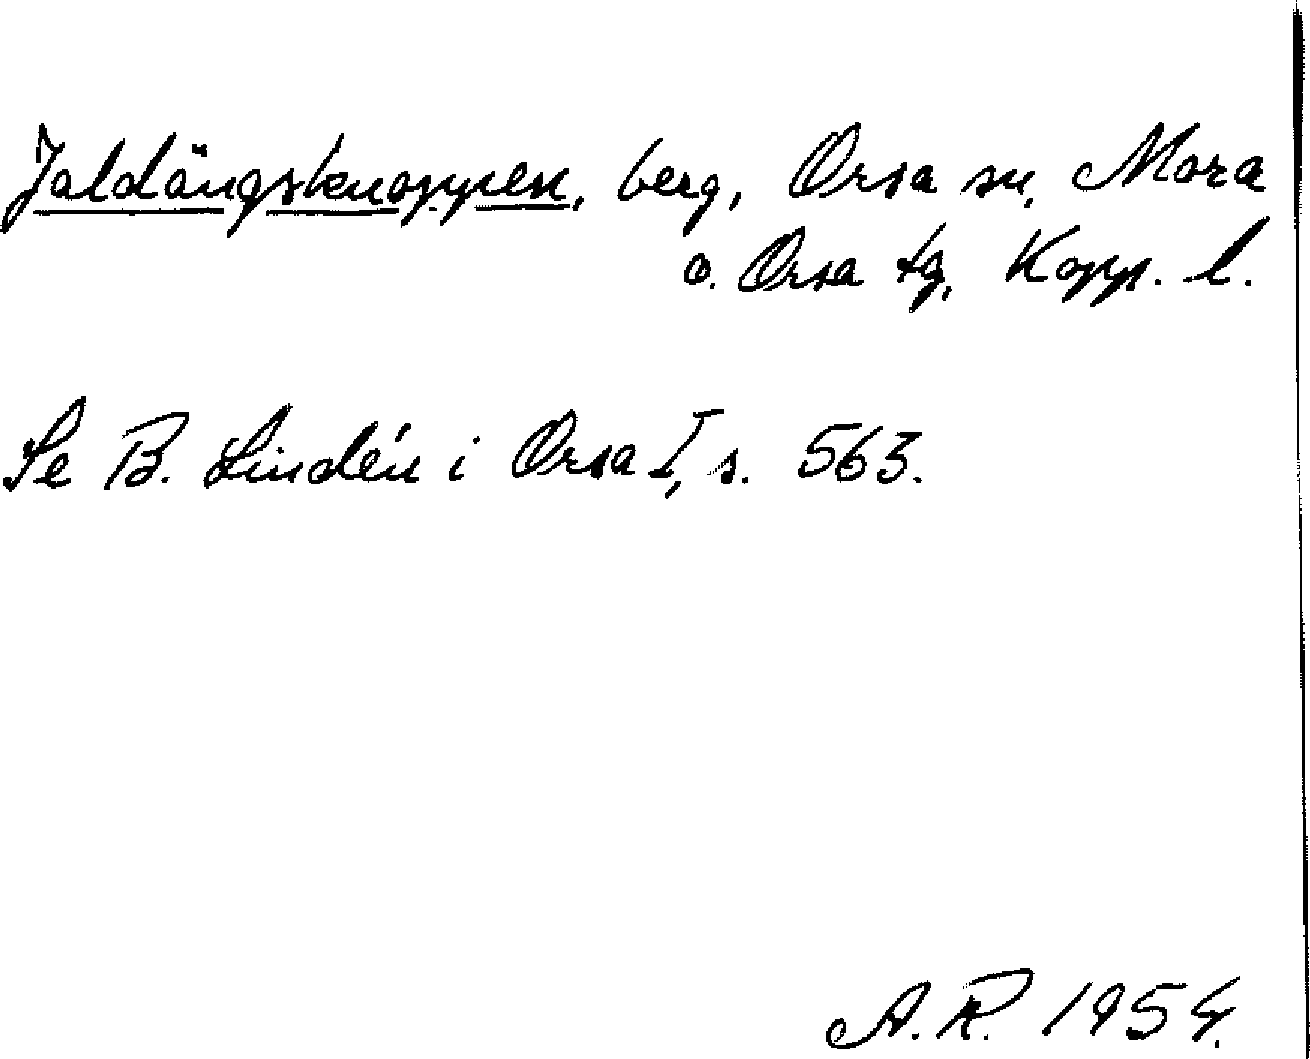 Jaldängsknoppen, berg, Orsa sn, Mora
o. Orsa tg, Kopp. l.
Se B. Lindén i Orsa I, s. 563.
A.R. 1954.